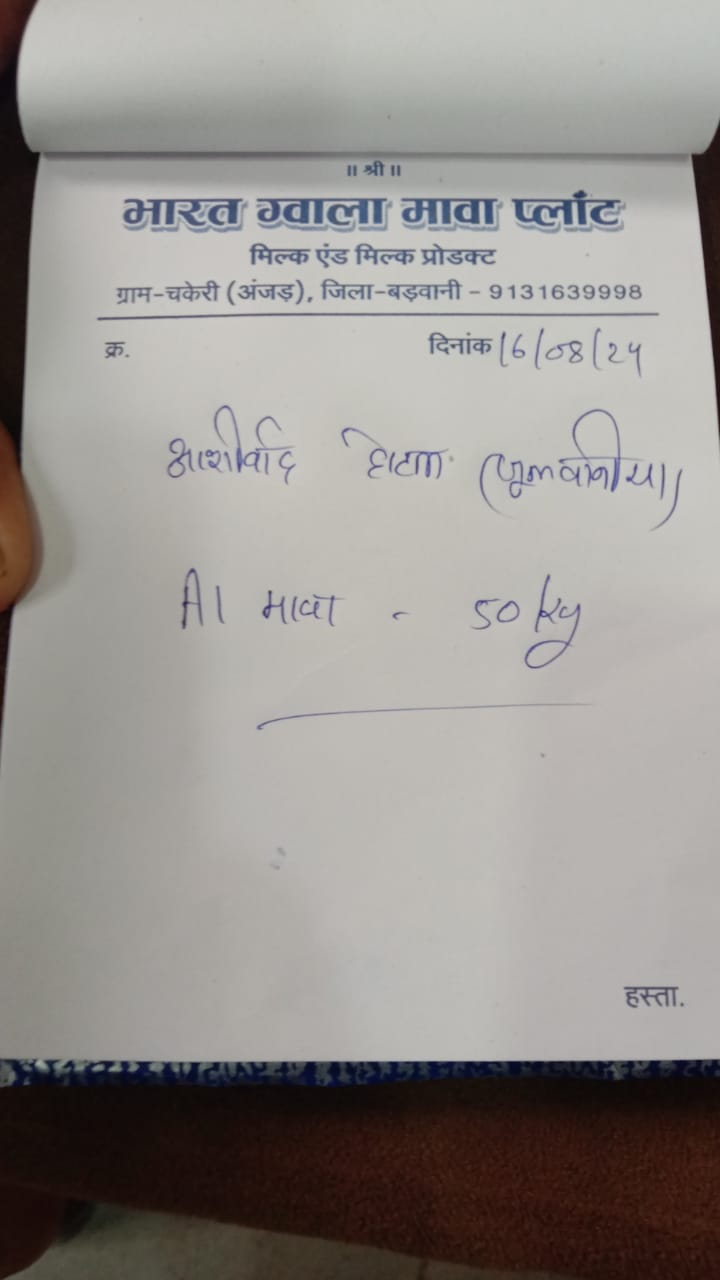 ॥ श्री ॥
भारत ग्वाला मावा प्लाँट
मिल्क एंड मिल्क प्रोडक्ट
ग्राम-चकेरी (अंजड़), जिला-बड़वानी - 9131639998
क्र. दिनांक 16/08/24
आशीर्वाद होटल (जूलवानीया)
A1 मावा - 50 kg
हस्ता.